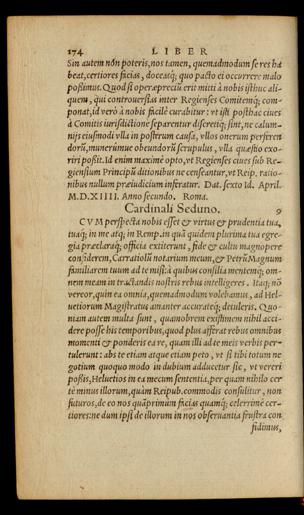 174 LIBER
Sin autem nõn poteris, nos tamen, quemadmodum se res ha
beat, certiores facias, doceasq́; quo pacto ei occurrere malo
possimus. Quod si operæpreciũ erit mitti à nobis isthuc ali-
quem, qui controuersias inter Regienses Comitemq́; com-
ponat, id verò à nobis facilè curabitur: vt isti posthac ciues
à Comitis iurisdictione separentur disertiq́; sint, ne calum-
nijs eiusmodi vlla in postrum causa, vllos onerum perferen
dorũ, munerúmue obeundorũ scrupulus, vlla quæstio exo-
riri poßit. Id enim maximè opto, vt Regienses ciues sub Re-
giensium Principũ ditionibus ne censeantur, vt Reip. ratio-
nibus nullum præiudicium inferatur. Dat. sexto Id. April.
M.D.XIIII. Anno secundo. Roma.
Cardinali Seduno. 9
CVM perspecta nobis esset & virtus & prudentia tua,
tuaq́; in me atq; in Remp. in qua quidem plurima tua egre-
gia præclaraq́; officia extiterunt, fide & cultu magnopere
considerem, Carratiolũ notarium meum, & Petrũ Magnum
familiarem tuum ad te misi: à quibus consilia mentemq́; om-
nem meam in tractandis nostris rebus intelliges. Itaq; nõ
vereor, quin ea omnia, quemadmodum volebamus, ad Hel-
uetiorum Magistratus amanter, accurateq́; detuleris. Quo-
niam autem multa sunt, quamobrem existimem nihil acci-
dere posse his temporibus, quod plus afferat rebus omnibus
momenti & ponderis ea re, quam illi ad te meis verbis per-
tulerunt: abs te etiam atque etiam peto, vt si tibi totum ne
gotium quoquo modo in dubium adducetur sic, vt vereri
poßis, Heluetios in ea mecum sententia, per quam nihilo cer
tè minus illorum, quàm Reipub. commodis consulitur, non
futuros, de eo nos quãprimùm facias quamq́; celerrimè cer-
tiores: ne dum ipsi de illorum in nos obseruantia frustra con
fidimus,